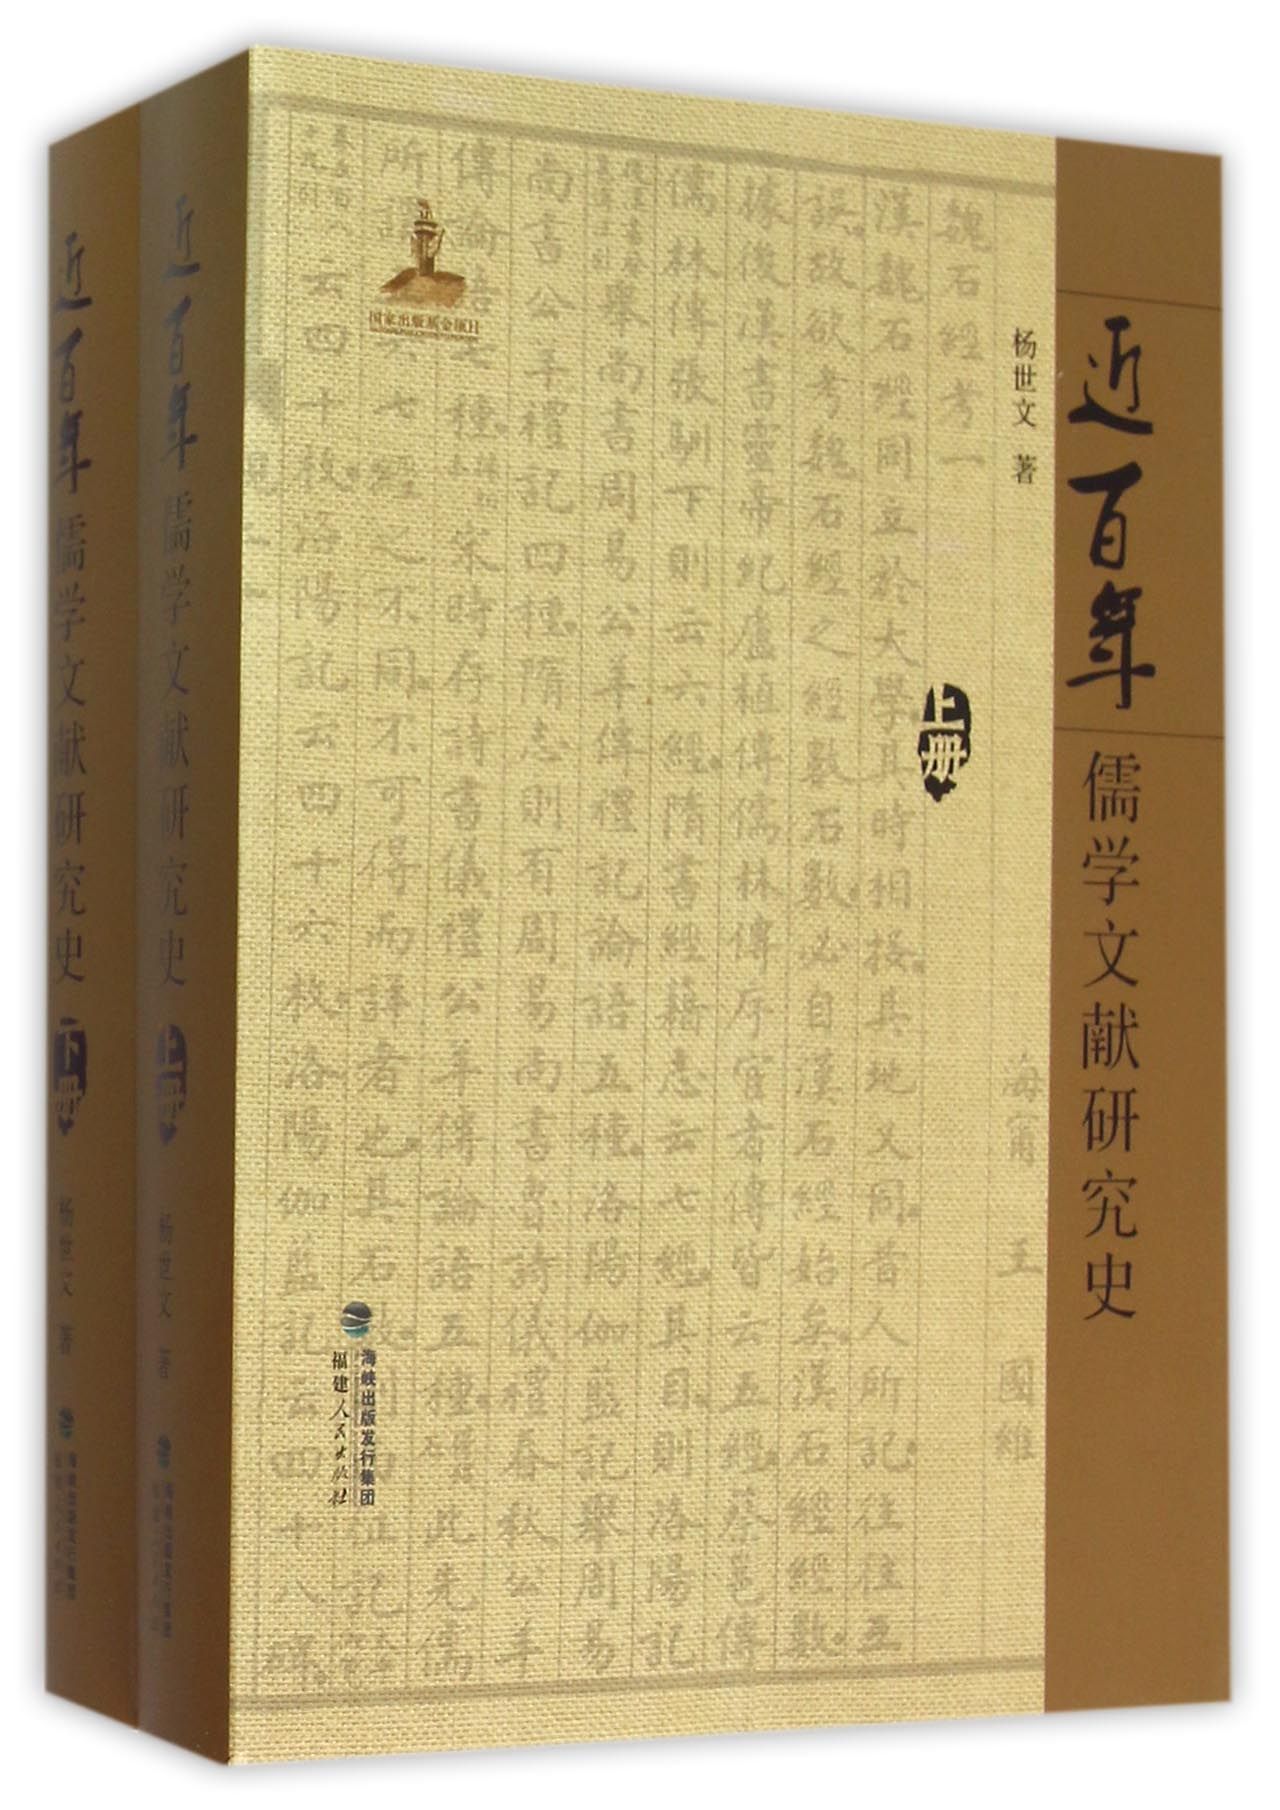 近百年
儒学文献研究史
杨世文 著
上册
国家出版基金项目
海宁 王国维
魏石經考一
漢魏石經同立於大學其時相接其地又同昔人所記往往互
誤故欲考魏石經之經數石數必自漢石經始矣漢石經經數
據後漢書靈帝紀盧植傳儒林傳序宦者傳皆云五經蔡邕傳
儒林傳張馴下則云六經隋書經籍志云七經其目則洛陽記
舉尚書周易公羊傳禮記論語五種洛陽伽藍記舉周易
尚書公羊禮記四種隋志則有周易尚書魯詩儀禮春秋公羊
傳論語七種宋時存詩書儀禮公羊傳論語五種此先儒
所 六七經之不同不可得而詳者也其石數則 記
云四十枚洛陽記云四十六枚洛陽伽藍記云四十八碑
海峡出版发行集团
福建人民出版社
近百年儒学文献研究史 上册 杨世文 著
海峡出版发行集团
近百年儒学文献研究史 下册 杨世文 著
海峡出版发行集团